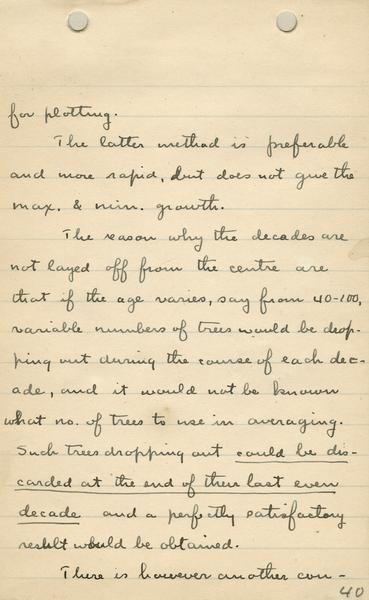 for plotting.
The latter method is preferable
and more rapid, but does not give the
max. & min. growth.
The reason why the decades are
not layed off from the centre are
that if the age varies, say from 40-100,
variable numbers of trees would be drop-
ping out during the course of each dec-
ade, and it would not be known
what no. of trees to use in averaging.
Such trees dropping out could be dis-
carded at the end of there last even
decade and a perfectly satisfactory
result would be obtained.
There is however another con-
40